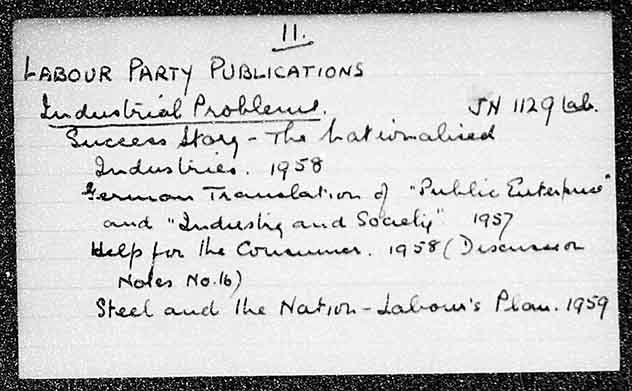 11.
LABOUR PARTY PUBLICATIONS
Industrial Problems. JN 1129 Lab.
Success Story - The Nationalised
Industries. 1958
German Translation of "Public Enterprise"
and "Industry and Society" 1957
Help for the Consumer. 1958 (Discussion
Notes No. 16)
Steel and the Nation - Labour's Plan. 1959